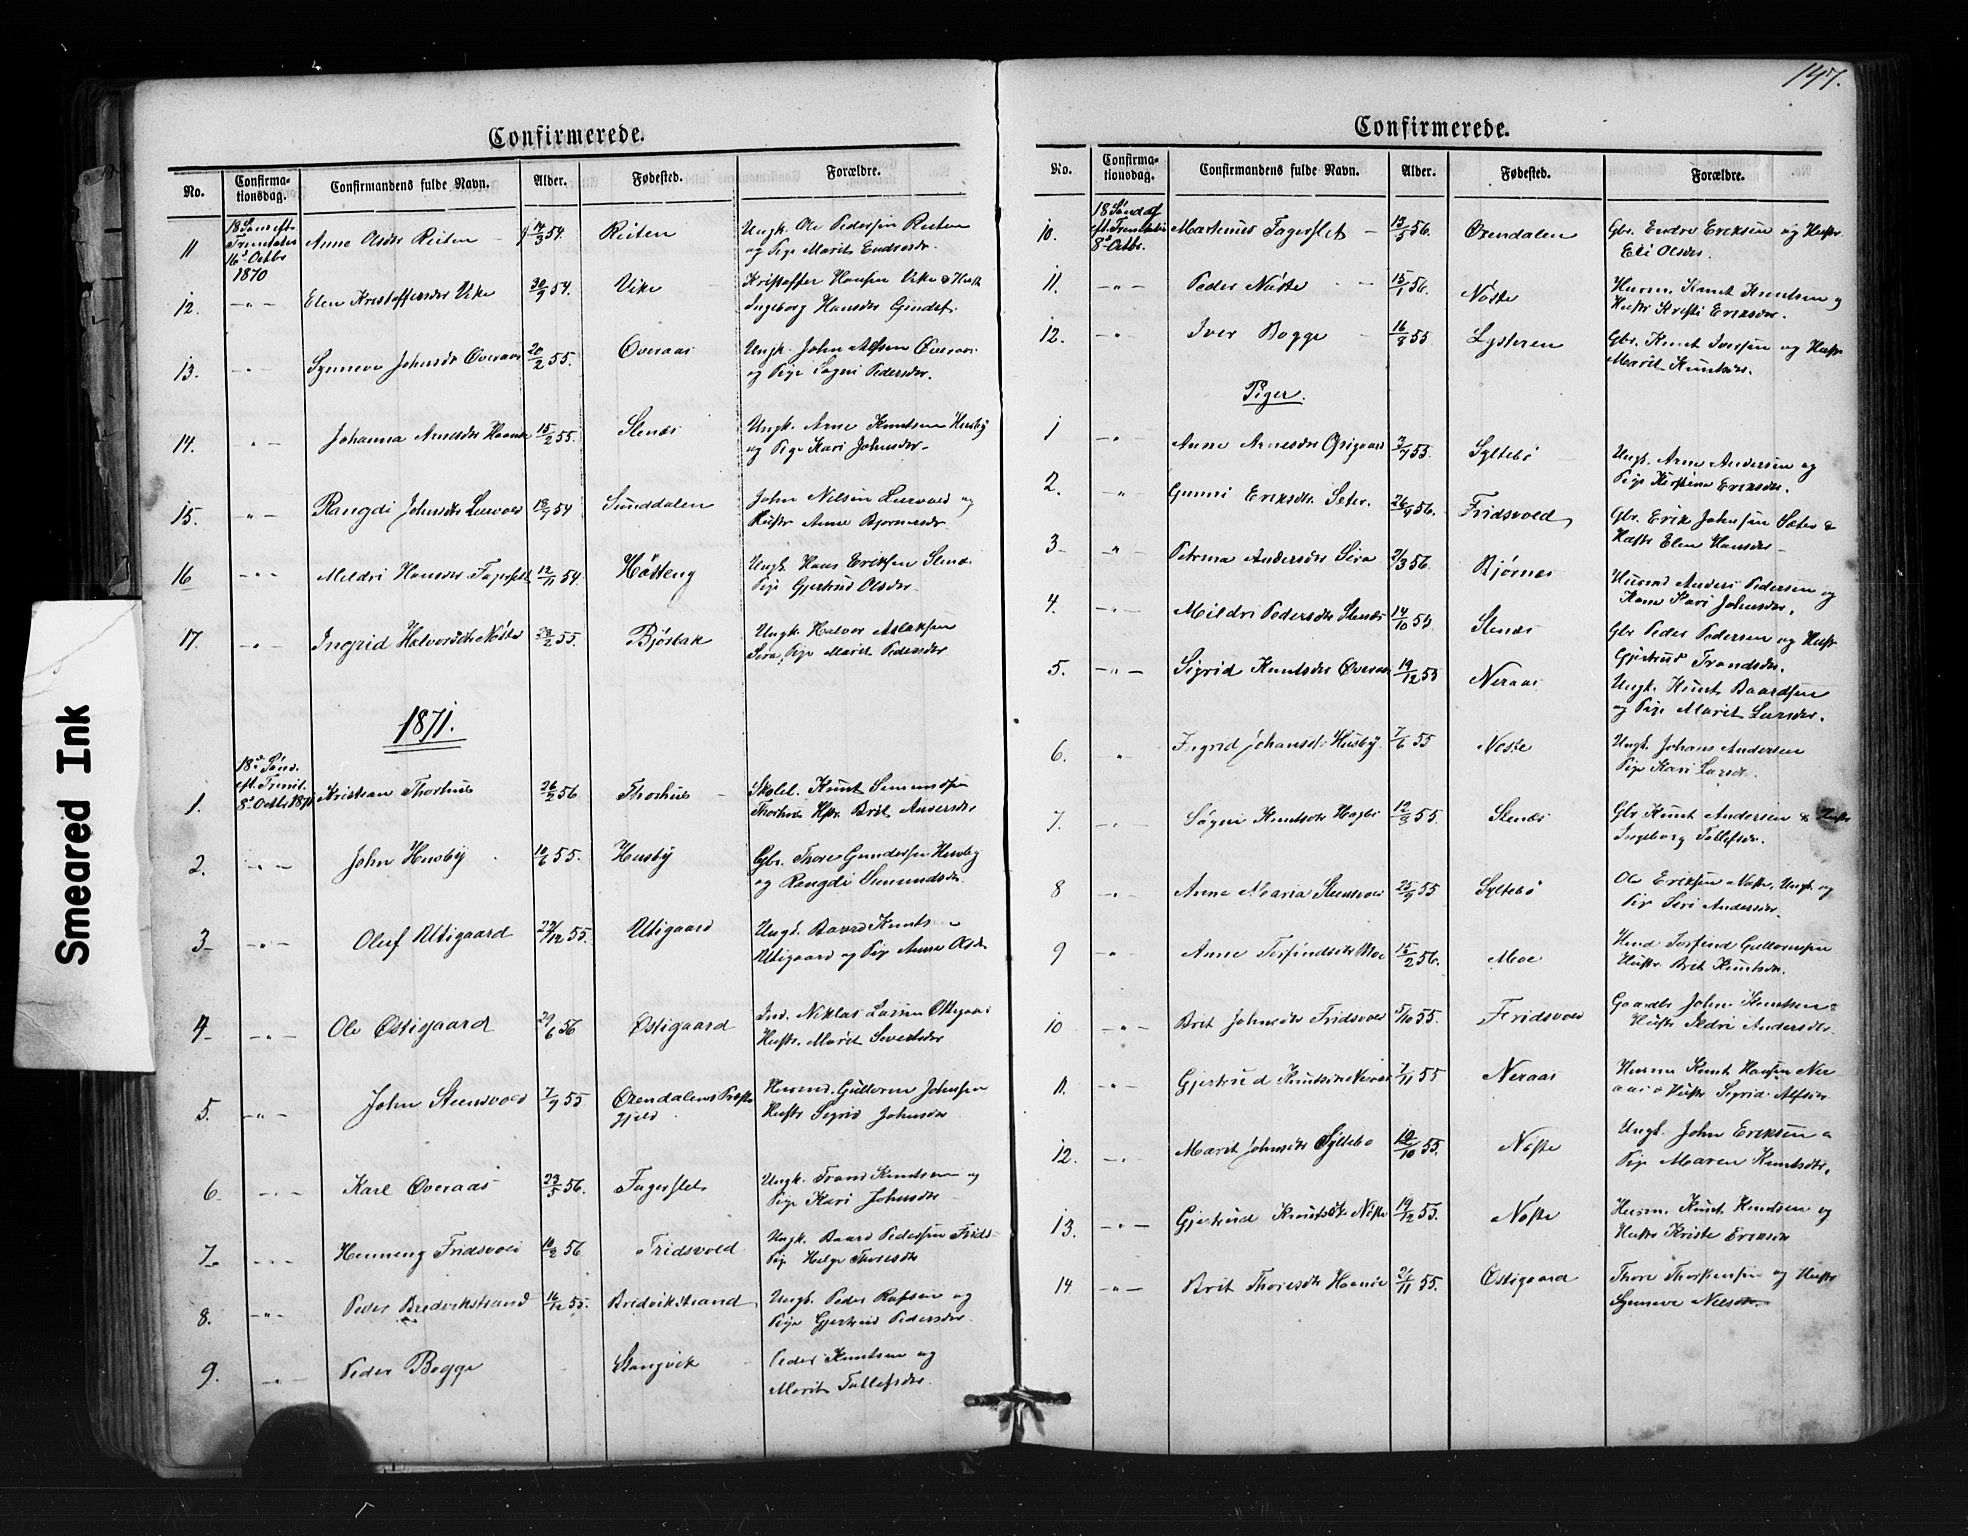 147.
Confirmerede.
No. Confirma-tionsdag. Confirmandens fulde Navn. Alder. Fødested. Forældre.
11 18 Søn eft Trinitatis 16de Octbr 1870 Anne Olsdtr Reiten 14/3 54. Reiten Ungk. Ole Pedersen Reiten
og Pige Marit Endresdr.
12. -"- Elen Kristoffersdtr Vike 30/9 54. Vike Kristoffer Hansen Vike & Hustr
Ingeborg Hansdtr
13. -"- Synneve Johnsdtr Overaas 20/2 55. Overaas Ungk. John Alfsen Overaas
og Pige Sagni Pedersdtr.
14. " Johanna Arnesdtr 15/2 55. Stenæs Ungk. Arne Knutsen Husby
og Pige Kari Johnsdtr.
15. -"- Rangdi Johnsdtr Leervold 54 Sunddalen John Nilsen Leervold og
Hustr Anne Bjørnesdr
16 -"- Mildri Hansdtr Fagerslet 12/11 54. Høsteng Ungk Hans Eriksen Stenæs
Pige Gjertrud Olsdtr.
17. -"- Ingrid Halvorsdtr Nøste 55. Bjørbak Ungk. Halvor Aslaksen
Sira, Pige Marit Pedersdtr
1871.
1. 18de Sønd. eft. Trinit. 8de Octbr 1871 Kristian Thorhus 26/2 56 Thorhus Skolel. Knut Semundsen
Thorhus Hstr. Brit Andersdtr
2. -"- John Husby 10/6 55. Husby Gbr. Thore Gundersen Husby
og Rangdi Semundsdtr.
3- -"- Oluf Utigaard 29/12 55. Utigaard Ungk. Baard Knutsen
Utigaard og Pige Anne Olsdtr
4- -"- Ole Østigaard 29/6 56 Østigaard Ind. Niklas Larsen Østigaar
Hustr. Marit Sivertsdtr
5. -"- John Steensvold 7/9 55 Øxendalens Præstegjeld Husmd. Gullorm Johnsen
Hustr Sigrid Johnsdtr
6. -"- Karl Overaas 23/5 56. Fagerslet Ungk. Trond Knutsen og
Pige Kari Johnsdtr
7- -"- Henning Fridsvold 10/2 56 Fridsvold Ungk. Baard Pedersen Frids-
Pige Helge Thoresdtr
8. -"- Peder Bredvikstrand 16/12 55. Bredvikstrand Ungk. Peder Rafsen og
Pige Gjertrud Pedersdtr.
9. -"- Peder Bogge Stangvik Peder Knutsen og
Marit Tollefsdtr.
Confirmerede.
No. Confirma-tionsdag. Confirmandens fulde Navn. Alder. Fødested. Forældre.
10. 18 Søndag eft. Trinitatis 8de Octbr. Martinus Fagerslet 13/5 56. Øxendalen Gbr. Endre Eriksen og Hustr
Eli Olsdtr.
11. -"- Peder Nøste 15/1 56. Nøste Husm. Knut Knutsen og
Hustr Kristi Eriksdtr.
12. -"- Iver Bogge 16/8 55 Lysteren Gbr. Knut Iversen og Hustr
Marit Knutsdtr.
Piger.
1 -"- Anne Arnesdtr 7/7 55. Syltebø Ungk. Arne Andersen og
Pige Kirstine Eriksdtr.
2. " Gunni Eriksdtr Seter. 26/9 56. Fridsvold Gbr. Erik Johnsen Sæter &
Hustr Elen Hansdtr
3- -"- Andersdtr Sira 56. Bjørnæs Husmd Anders Pedersen og
Kone Kari Johnsdtr.
4. -"- Mildri Pedersdtr Stenæs 14/10 55 Stenæs Gbr Peder Pedersen og Hustr
Gjertrud Trondsdtr.
5. -"- Sigrid Knutsdtr Overaas 19/12 55 Neraas Ungk. Knut Baardsen
og Pige Marit Larsdtr.
6. " Ingrid Johansdtr Husby. 7/6 55 Nøste Ungk. Johans Andersen
Pige Kari Larsd.
7. -"- Søgni Knutsdtr 12/3 55. Stenæs Gbr Knut Andersen & Hustr
Ingeborg Tollefsdtr.
8 -"- Anne Maria Steensvold 25/9 55 Syltebø Ole Eriksen Nøste, Ungk. og
Pige Siri Andersdtr.
9 -"- Anne Torfindsdtr Moe 15/2 56. Moe Husmd Torfind Gullormsen
Hustr. Brit Knutsdtr.
10 -"- Brit Johnsdtr Fridsvold 5/10 55. Fridsvold Gaardbr John Knutsen &
Hustr Ildri Andersdtr.
11. -"- Gjertrud Knutsdtr Neraas 7/11 55 Neraas Husm Knut Hansen Ner
aas & Hustr Sigrid Alfsdtr
12. -"- Marit Johnsdtr Syltebø 10/10 55. Nøste Ungk. John Eriksen &
Pige Maren Knutsdtr.
13. -"- Gjertrud Knutsdtr Nøste 19/12 55. Nøste Husm. Knut Knutsen og
Hustr Kristi Eriksdtr
14 -"- Brit Thoresdtr 21/11 55. Østigaard Thore Thorstensen og Hustr
Synneve Nilsdtr
Smeared Ink